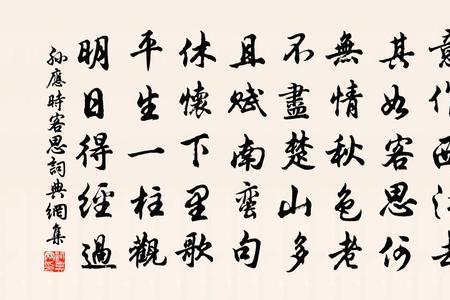 其如客思何
無情秋色老
不盡楚山多
且賦南蠻句
休懷下里歌
平生一柱觀
明日得經過
孫應時客思詞典網集